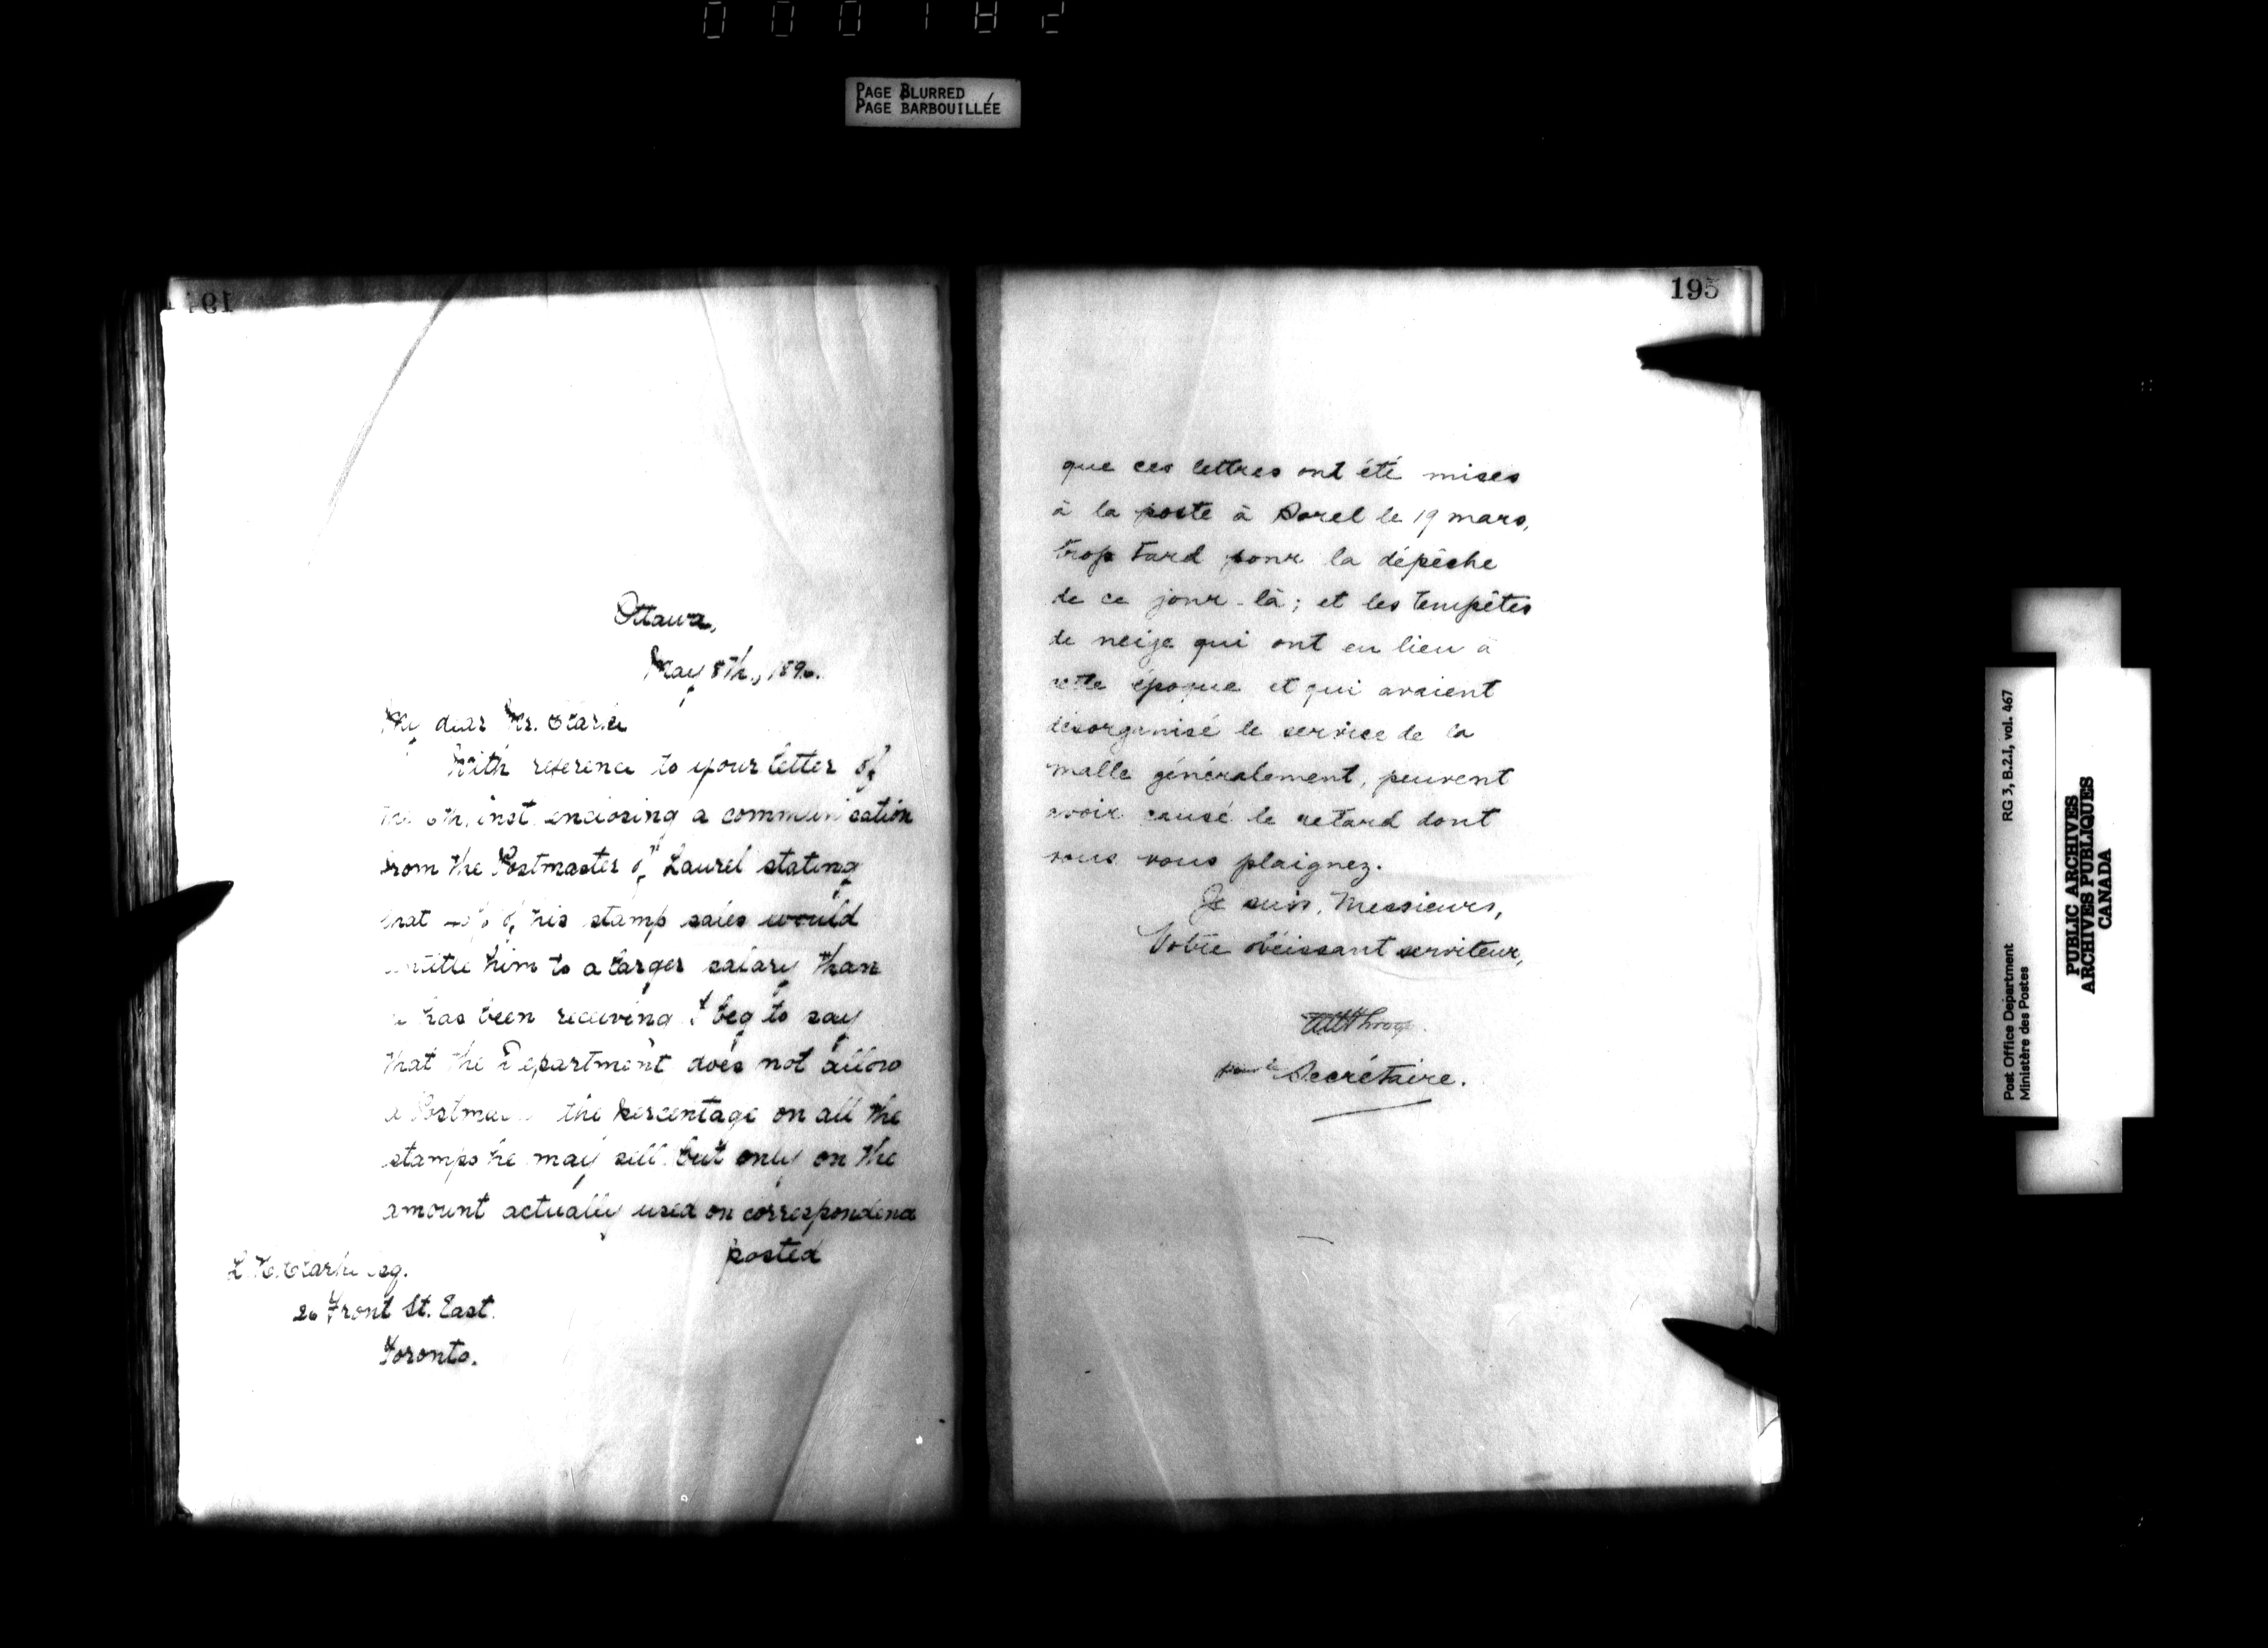 PAGE BLURRED
PAGE BARBOUILLÉE
195
Ottawa,
May 8th., 189
My dear Mr. Clarke
With reference to your letter of
the 6th. inst. enclosing a communication
from the Postmaster of Laurel stating
that % of his stamp sales would
entitle him to a larger salary than
he has been receiving I beg to say
that the Department does not allow
a the percentage on all the
stamps he may sell but only on the
amount actually used on correspondence
posted
Clarke Esq.
26 Front St. East.
Toronto.
que ces lettres ont été mises
à la poste à Sorel le 19 mars,
trop tard pour la dépêche
de ce jour-là; et les tempêtes
de neige qui ont eu lieu à
cette époque et qui avaient
désorganisé le service de la
malle généralement, peuvent
avoir causé le retard dont
vous vous plaignez.
Je suis, Messieurs,
Votre obéissant serviteur,
pour le Secrétaire.
Post Office Department
Ministère des Postes
RG 3, B.2.1, vol. 467
PUBLIC ARCHIVES
ARCHIVES PUBLIQUES
CANADA